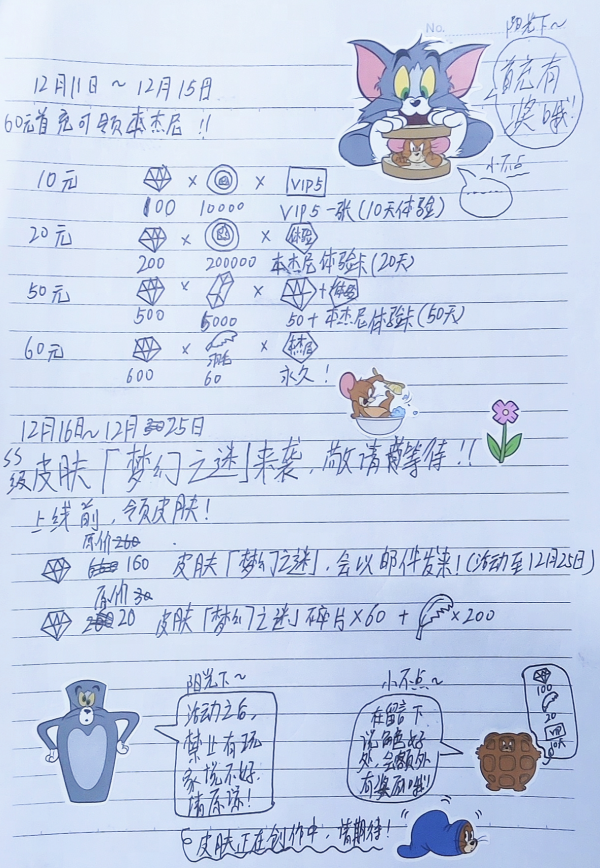 No.
阳光下~
首充有
奖哦!
12月11日 ~ 12月15日
60元首充可领本杰尼!!
小不点
......
10元 × × VIP5
100 10000 VIP5一张(10天体验)
20元 × × 体验
200 200000 本杰尼体验卡(20天)
50元 × × + 体验
500 5000 50+本杰尼体验卡(50天)
60元 × 羽毛 × 杰尼
600 60 永久!
12月16日~12月25日
SS级皮肤「梦幻之谜」来袭,敬请等待!!
上线前,领皮肤!
原价260
160 皮肤「梦幻之谜」,会以邮件发来!(活动至12月25日)
原价30
20 皮肤「梦幻之谜」碎片×60 + ×200
阳光下~
活动之后,
禁止有玩
家说不好.
请原谅!
小不点~
在留言下
说角色好
处,会额外
有奖励哦!
100
20
VIP
10天
皮肤正在创作中,请期待!